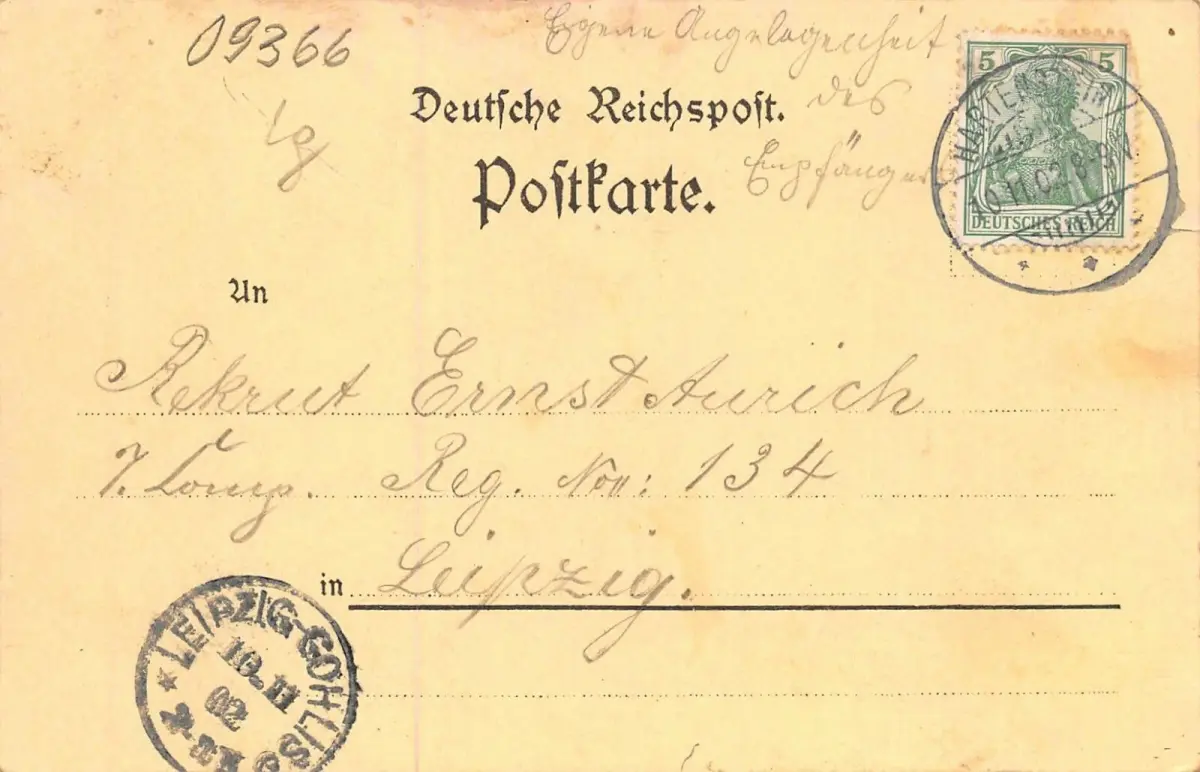 09366
Eigene Angelegenheit
des
Empfängers
Deutsche Reichspost.
Postkarte.
5 5
DEUTSCHES REICH
HARTENSTEIN
10.11.02 8-9V.
An
Rekrut Ernst Aurich
7. Comp. Reg. Nro: 134
in Leipzig.
LEIPZIG-GOHLIS
10.11
02